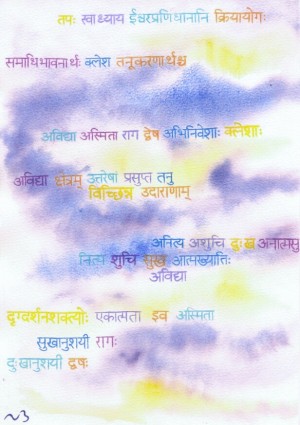 तपः स्वाध्याय ईश्वरप्रणिधानानि क्रियायोगः
समाधिभावनार्थः क्लेश तनूकरणार्थश्च
अविद्या अस्मिता राग द्वेष अभिनिवेशाः क्लेशाः
अविद्या क्षेत्रम् उत्तरेषां प्रसुप्त तनु
विच्छिन्न उदाराणाम्
अनित्य अशुचि दुःख अनात्मसु
नित्य शुचि सुख आत्मख्यातिः
अविद्या
दृग्दर्शनशक्त्योः एकात्मता इव अस्मिता
सुखानुशयी रागः
दुःखानुशयी द्वेषः